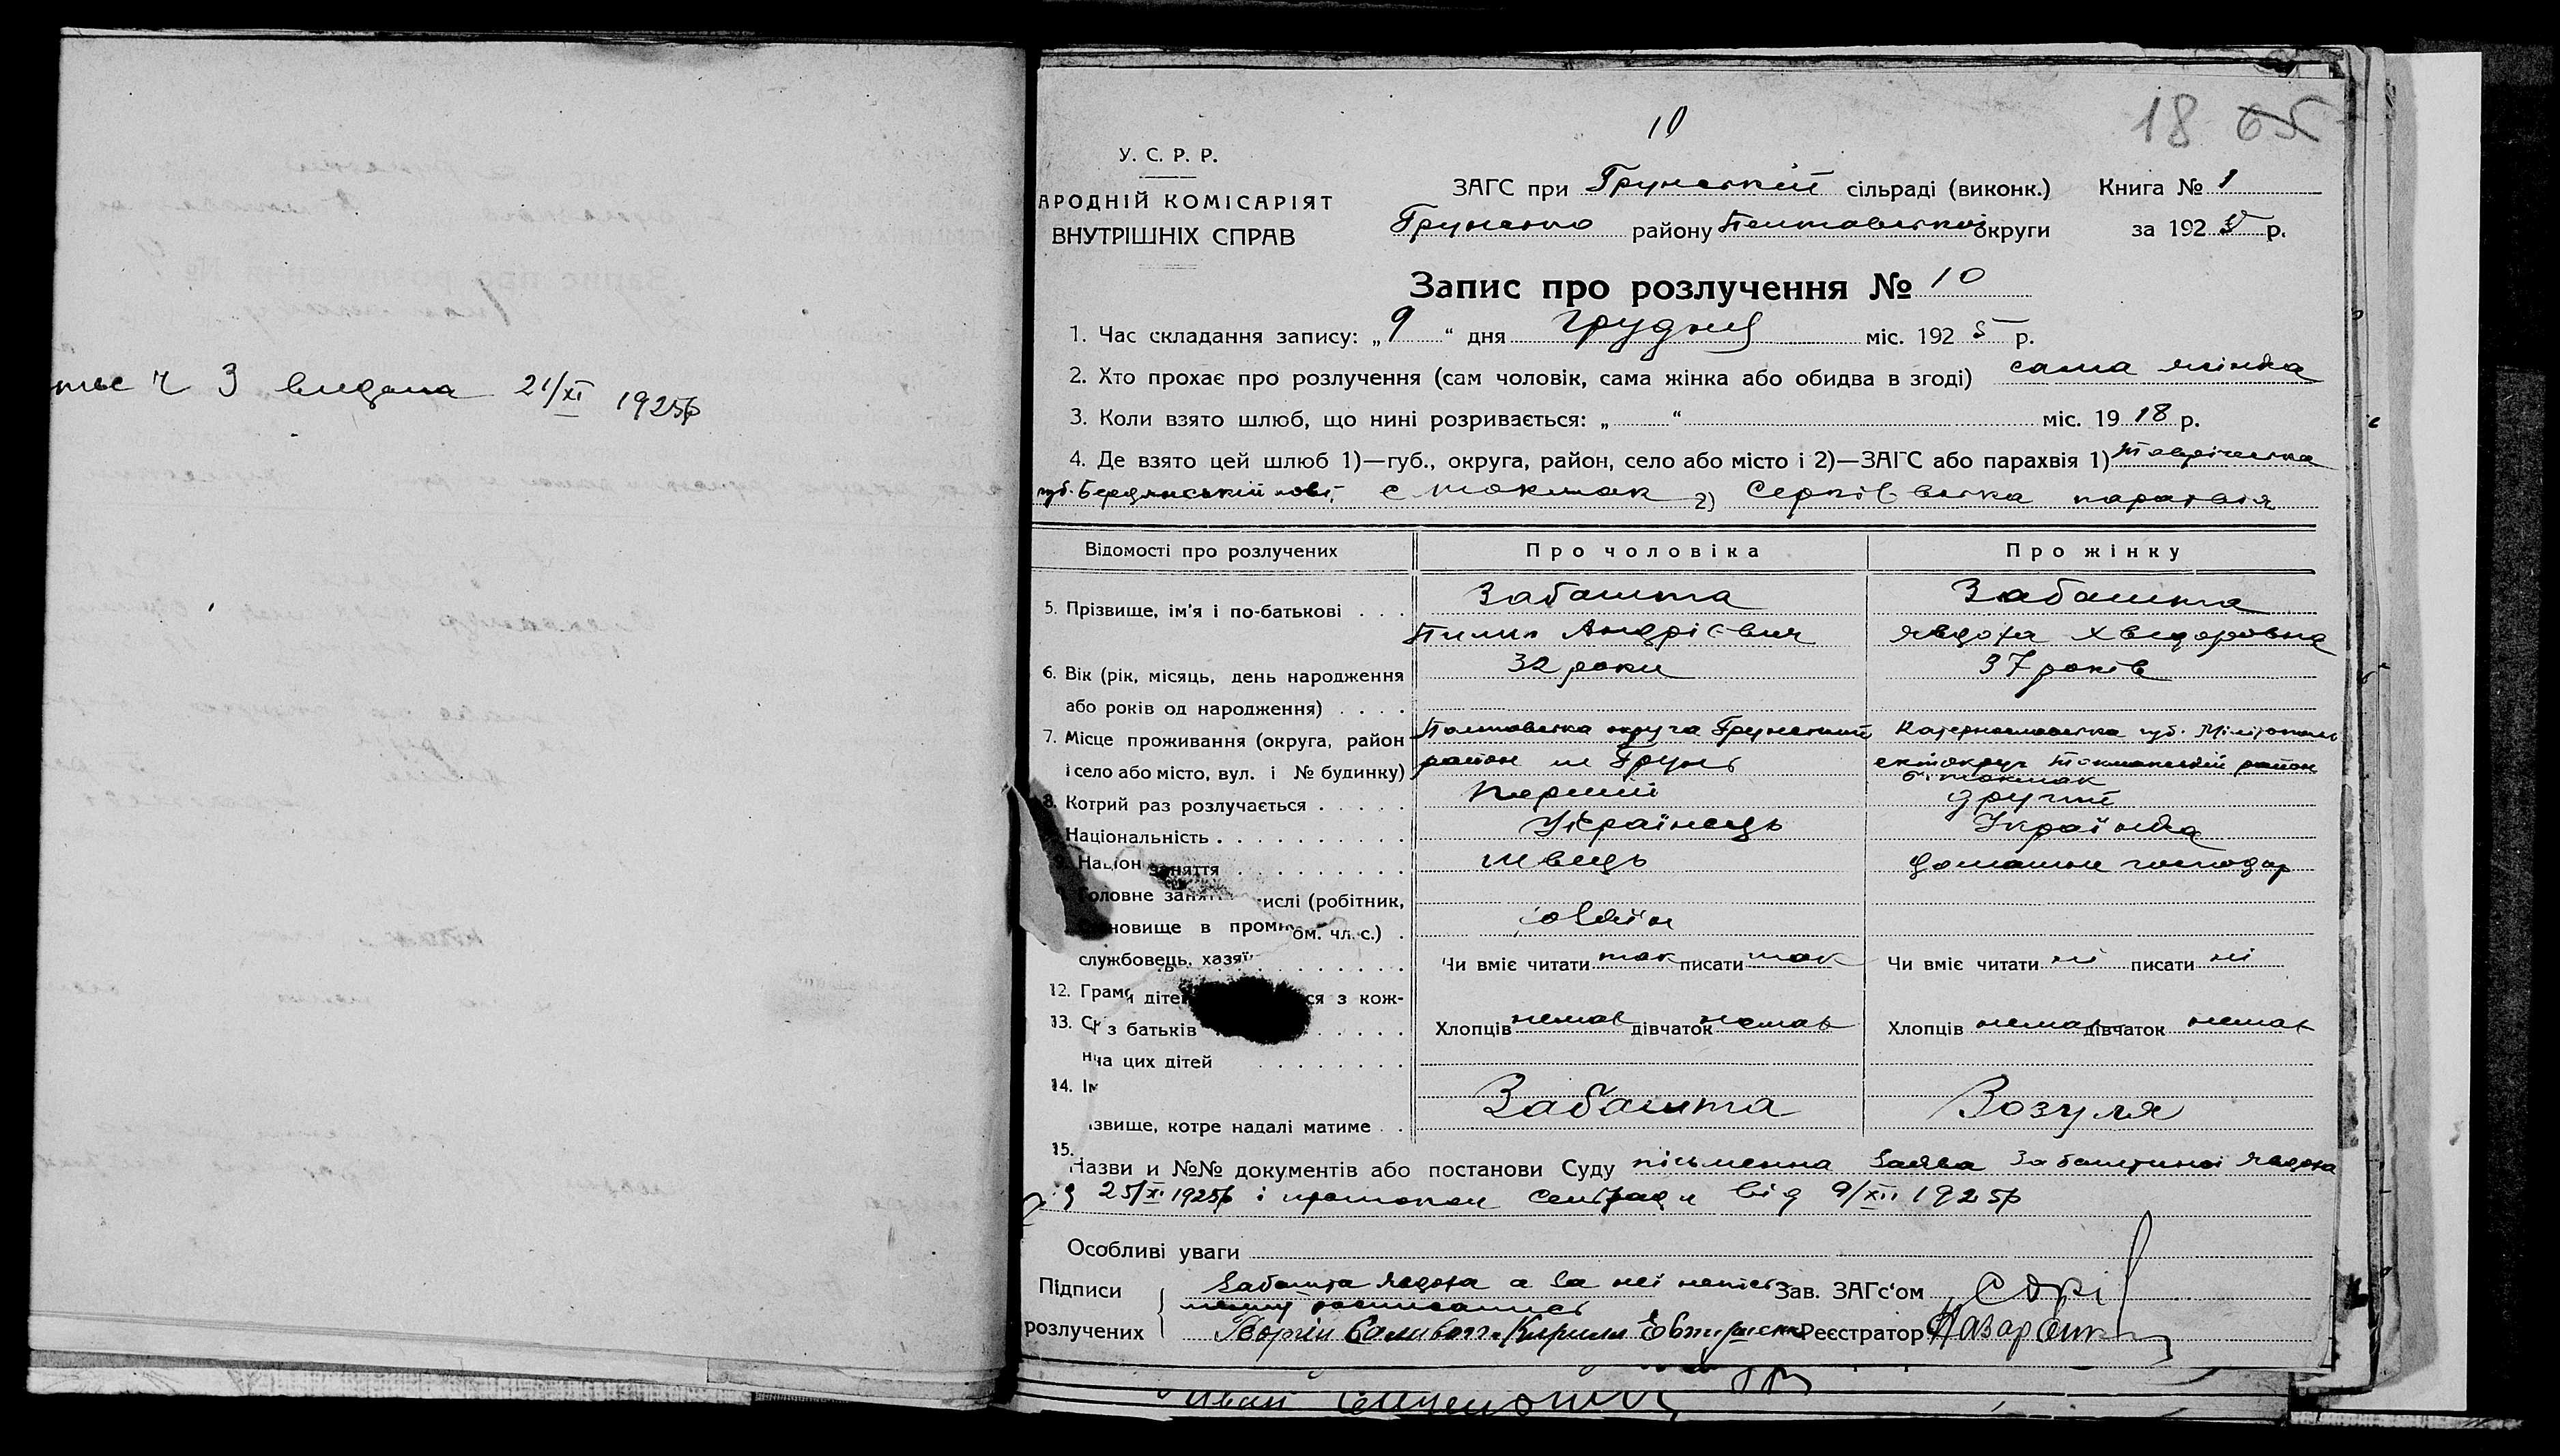 ч 3 видана 21/XI 1925р
18 65
10
У. С. Р. Р.
АРОДНІЙ КОМІСАРІЯТ
ВНУТРІШНІХ СПРАВ
ЗАГС при Грунській сільраді (виконк.) Книга № 1
Грунсько району Полтавської округи за 1925 р.
Запис про розлучення № 10
1. Час складання запису: „9“ дня грудня міс. 1925 р.
2. Хто прохає про розлучення (сам чоловік, сама жінка або обидва в згоді) сама жінка
3. Коли взято шлюб, що нині розривається: „ “ міс. 1918 р.
4. Де взято цей шлюб 1)—губ., округа, район, село або місто і 2)—ЗАГС або парахвія 1) Таврічеська
губ. Бердянській пов. с Токмак 2) Сергієвська парахвія
Відомості про розлучених Про чоловіка Про жінку
5. Прізвище, ім'я і по-батькові Забашта Забашта
Пилип Андрієвич Явдоха Хведоровна
6. Вік (рік, місяць, день народження 32 роки 37 років
або років од народження)
7. Місце проживання (округа, район Полтавська округа Грунський Катеринославська губ. Мілітополь
і село або місто, вул. і № будинку) район м Грунь ській округ Токмакській район
Б-токмак
8. Котрий раз розлучається Перший другий
Національність Українець Українка
Націон заняття швець домашнє господар
Головне занят ислі (робітник,
новище в проми ом. чл. с.)
службовець, хазяї Чи вміє читати так писати так Чи вміє читати ні писати ні
12. Грам дітей ся з кож-
13. Ск з батьків Хлопців немає дівчаток немає Хлопців немає дівчаток немає
на цих дітей
14. Ім
ізвище, котре надалі матиме Забашта Зозуля
15.
Назви и №№ документів або постанови Суду письменна заява Забаштиної Явдохи
25/XI 1925р і протокол сельради від 9/XII 1925р
Особливі уваги
Підписи Забашта Явдоха а за неї Зав. ЗАГс'ом
розписались
розлучених Кирило Реєстратор Назаренко
Иван